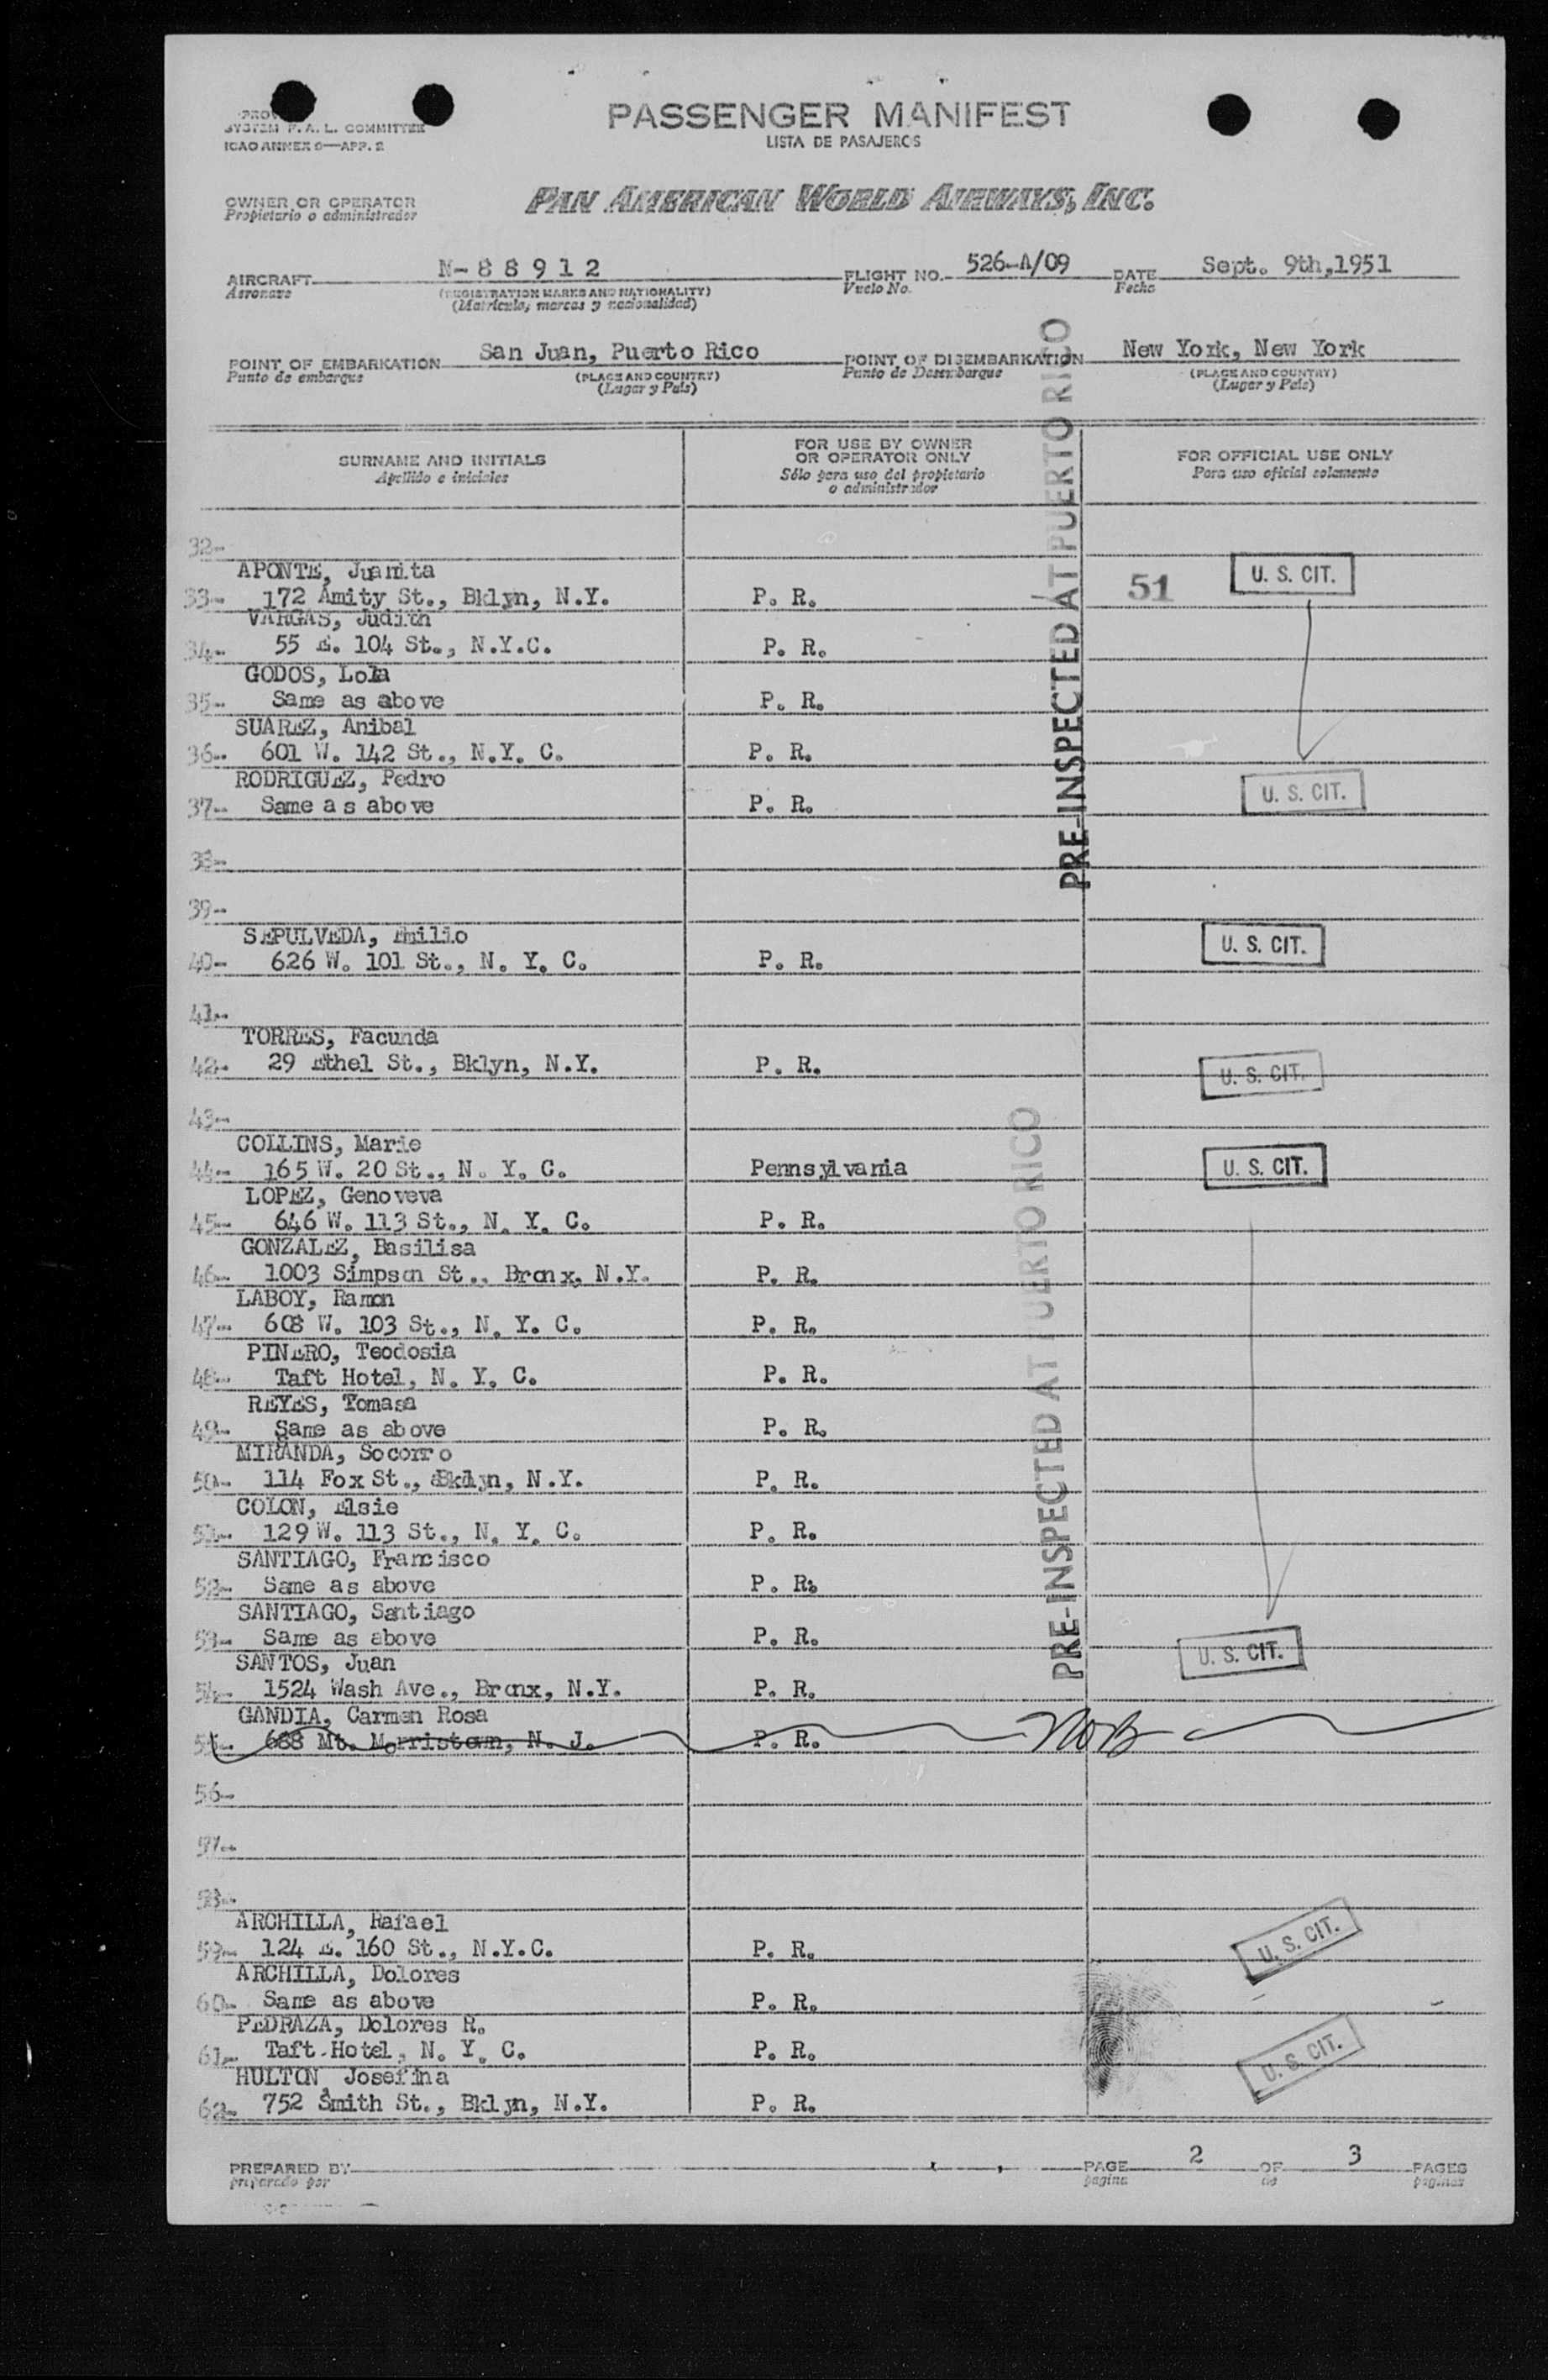 SYSTEM F. A. L. COMMITTEE
ICAO ANNEX 9—APP. 2
PASSENGER MANIFEST
LISTA DE PASAJEROS
OWNER OR OPERATOR
Propietario o administrador
PAN AMERICAN WORLD AIRWAYS, INC.
AIRCRAFT N-88912 FLIGHT NO. 526-A/09 DATE Sept. 9th,1951
Aeronave (REGISTRATION MARKS AND NATIONALITY) Vuelo No. Fecha
(Matrícula, marcas y nacionalidad)
POINT OF EMBARKATION San Juan, Puerto Rico POINT OF DISEMBARKATION New York, New York
Punto de embarque (PLACE AND COUNTRY) Punto de Desembarque (PLACE AND COUNTRY)
(Lugar y País) (Lugar y País)
SURNAME AND INITIALS
Apellido e iniciales
FOR USE BY OWNER
OR OPERATOR ONLY
Sólo para uso del propietario
o administrador
FOR OFFICIAL USE ONLY
Para uso oficial solamente
PRE-INSPECTED AT PUERTO RICO
32-
APONTE, Juanita
33- 172 Amity St., Bklyn, N.Y. P. R. 51 U. S. CIT.
VARGAS, Judith
34- 55 E. 104 St., N.Y.C. P. R.
GODOS, Lola
35- Same as above P. R.
SUAREZ, Anibal
36- 601 W. 142 St., N.Y. C. P. R.
RODRIGUEZ, Pedro
37- Same as above P. R. U. S. CIT.
38-
39-
SEPULVEDA, Emilio
40- 626 W. 101 St., N. Y. C. P. R. U. S. CIT.
41-
TORRES, Facunda
42- 29 Ethel St., Bklyn, N.Y. P. R. U. S. CIT.
43-
COLLINS, Marie
44- 165 W. 20 St., N. Y. C. Pennsylvania U. S. CIT.
LOPEZ, Genoveva
45- 646 W. 113 St., N. Y. C. P. R.
GONZALEZ, Basilisa
46- 1003 Simpson St., Bronx, N.Y. P. R.
LABOY, Ramon
47- 608 W. 103 St., N. Y. C. P. R.
PINERO, Teodosia
48- Taft Hotel, N. Y. C. P. R.
REYES, Tomasa
49- Same as above P. R.
MIRANDA, Socorro
50- 114 Fox St., Bklyn, N.Y. P. R.
COLON, Elsie
51- 129 W. 113 St., N. Y. C. P. R.
SANTIAGO, Francisco
52- Same as above P. R.
SANTIAGO, Santiago
53- Same as above P. R. U. S. CIT.
SANTOS, Juan
54- 1524 Wash Ave., Bronx, N.Y. P. R.
GANDIA, Carmen Rosa
55- 688 Mt. Morristown, N. J. P. R. NOB
56-
57-
58-
PRE-INSPECTED AT PUERTO RICO
ARCHILLA, Rafael
59- 124 E. 160 St., N.Y.C. P. R. U. S. CIT.
ARCHILLA, Dolores
60- Same as above P. R.
PEDRAZA, Dolores R.
61- Taft Hotel, N. Y. C. P. R. U. S. CIT.
HULTON, Josefina
62- 752 Smith St., Bklyn, N.Y. P. R.
PREPARED BY PAGE 2 OF 3 PAGES
preparado por pagina de paginas